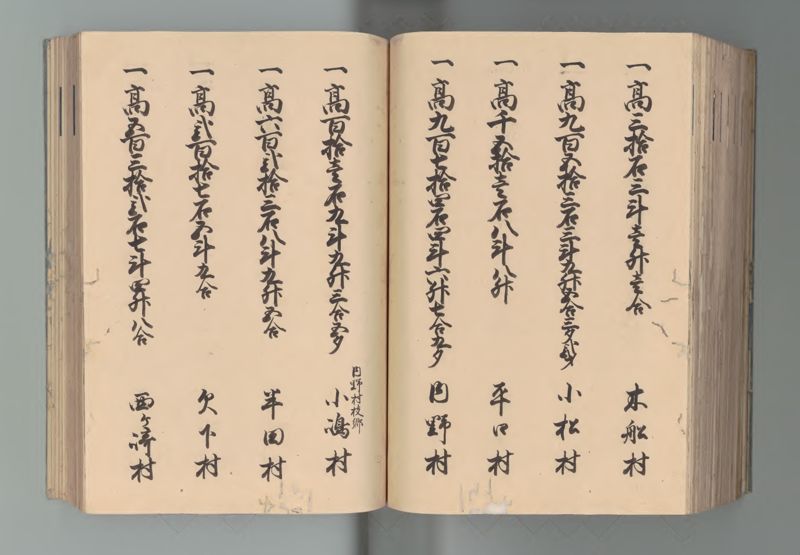 一高三拾石三斗壱升壱合 木船村
一高九百五拾三石三斗九升五合三夕弐才 小松村
一高千五拾壱石八斗八升 平口村
一高九百七拾四石四斗六升七合九夕 内野村
一高百拾壱石九斗九升三合五夕 内野村枝郷 小嶋村
一高六百弐拾三石八斗九升五合 半田村
一高弐百拾七石五斗九合 欠下村
一高五百三拾弐石七斗四升八合 西ヶ崎村